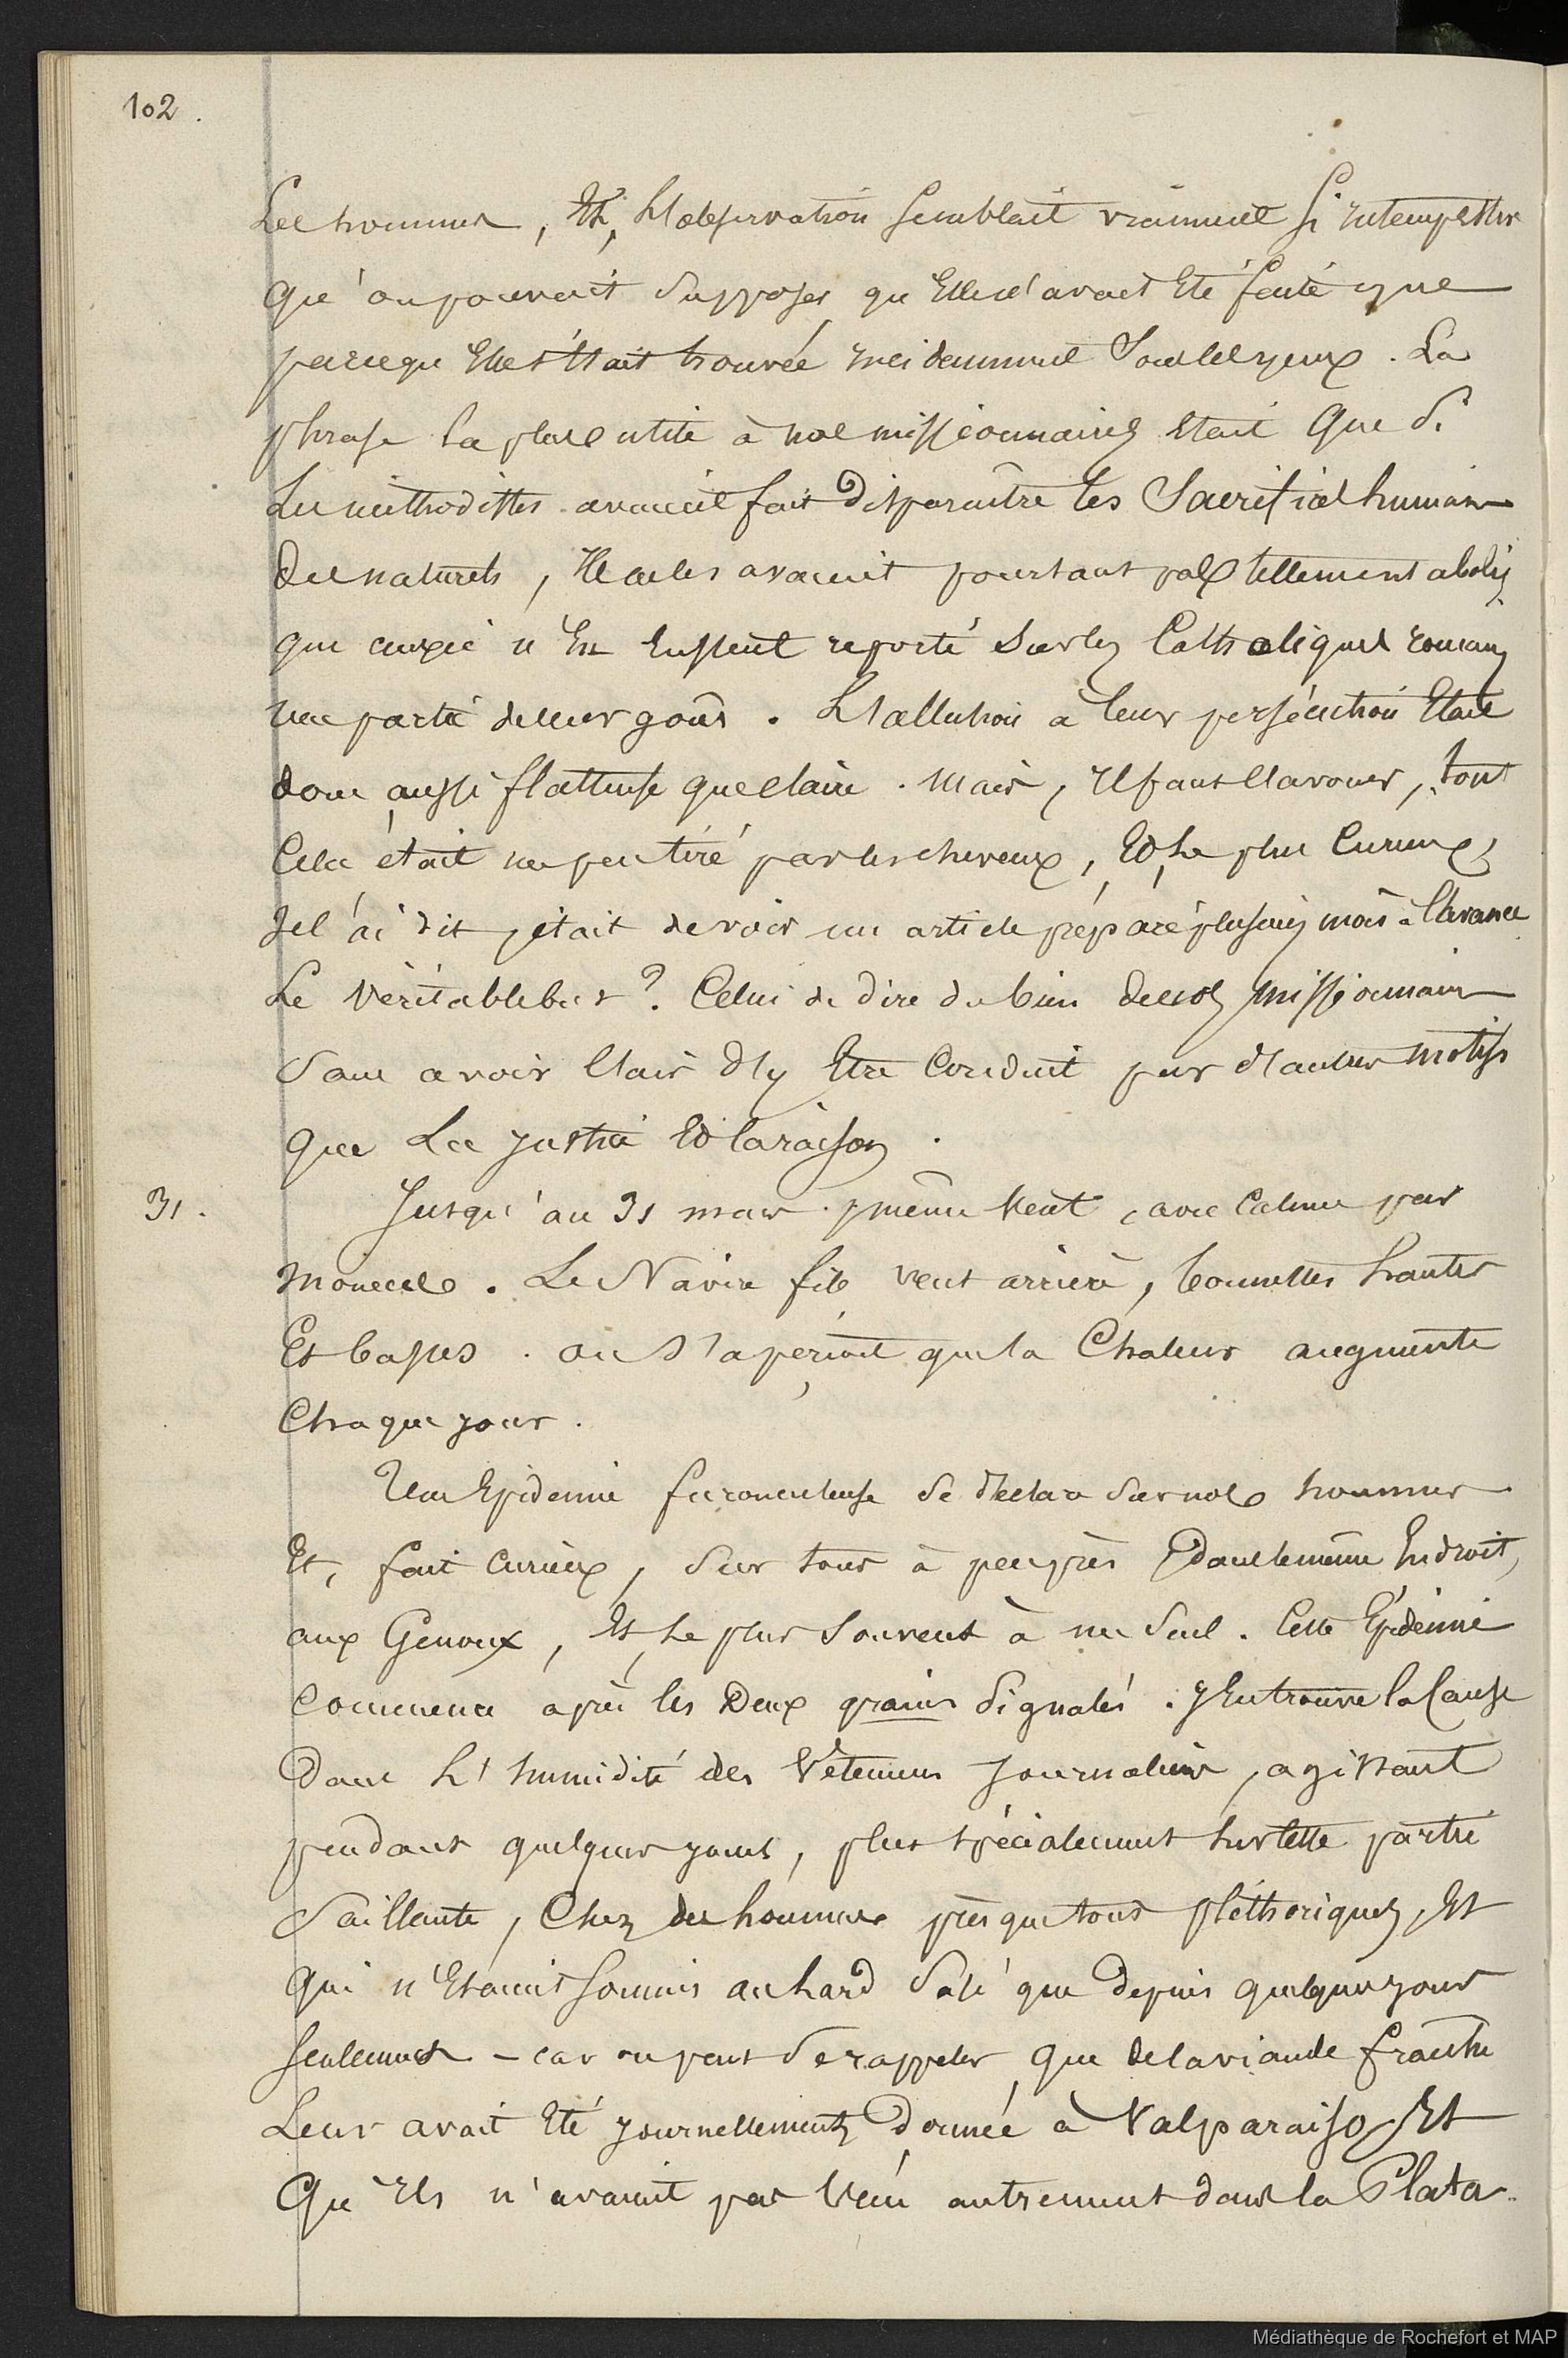 102.
Les hommes, Et, L'observation semblait vraiment si intempestive
Qu'on pouvait supposer qu'Elle n'avait Eté faite que
parcequ'Elle s'était trouvée incidemment sous les yeux. La
phrase la plus utile à nos missionnaires était Que si
Les méthodistes avaient fait Disparaître les Sacrifices humains
des naturels, Ils ne les avaient pourtant pas tellement abolis
que ceux-ci n'En Eussent reporté sur les Catholiques romains
une partie de leur goût. L'allusion à leur persécution Etait
donc aussi flatteuse que claire. Mais, il faut l'avouer, tout
Cela était un peu tiré par les cheveux, Et, Le plus curieux,
Je l'ai dit, était de voir un article préparé plusieurs mois à l'avance
Le véritable but ? Celui de dire du bien de nos missionnaires
Sans avoir l'air d'y Etre Conduit par d'autres motifs
que La justice Et la raison.
31.
Jusqu'au 31 mars même Vent, avec Calme par
moments. Le Navire file vent arrière, bonnettes hautes
Et basses. On s'aperçoit que la Chaleur augmente
Chaque jour.
Une Epidémie furonculeuse se déclara sur nos hommes
Et, fait curieux, sur tous à peu près dans le même Endroit,
aux Genoux, Et, Le plus souvent à un seul. Cette Epidémie
commença après les Deux grains signalés. J'En trouve la Cause
Dans L'humidité des Vêtemens journaliers, agissant
pendant quelques jours, plus spécialement sur cette partie
Saillante, Chez des hommes presque tous pléthoriques, Et
Qui n'Etaient soumis au lard salé que Depuis quelques jours
seulement - car on peut se rappeler que de la viande fraîche
Leur avait Eté journellement Donnée à Valparaiso, Et
Qu'Ils n'avaient pas vécu autrement dans la Plata.
Médiathèque de Rochefort et MAP